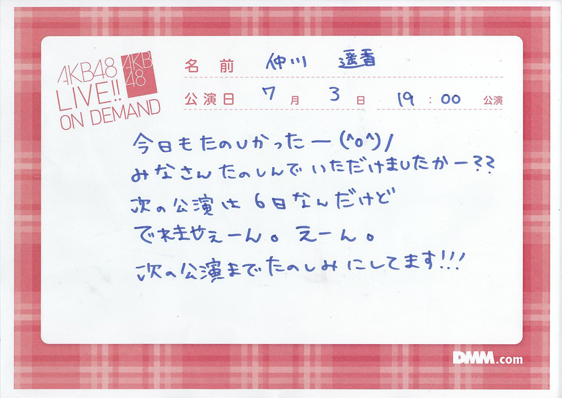 AKB48
LIVE!!
ON DEMAND
AKB
48
名 前 仲川 遥香
公演日 7 月 3 日 19 : 00 公演
今日もたのしかったー(^o^)/
みなさんたのしんでいただけましたかー??
次の公演は 6日なんだけど
でれませぇーん。えーん。
次の公演までたのしみにしてます!!!
DMM.com